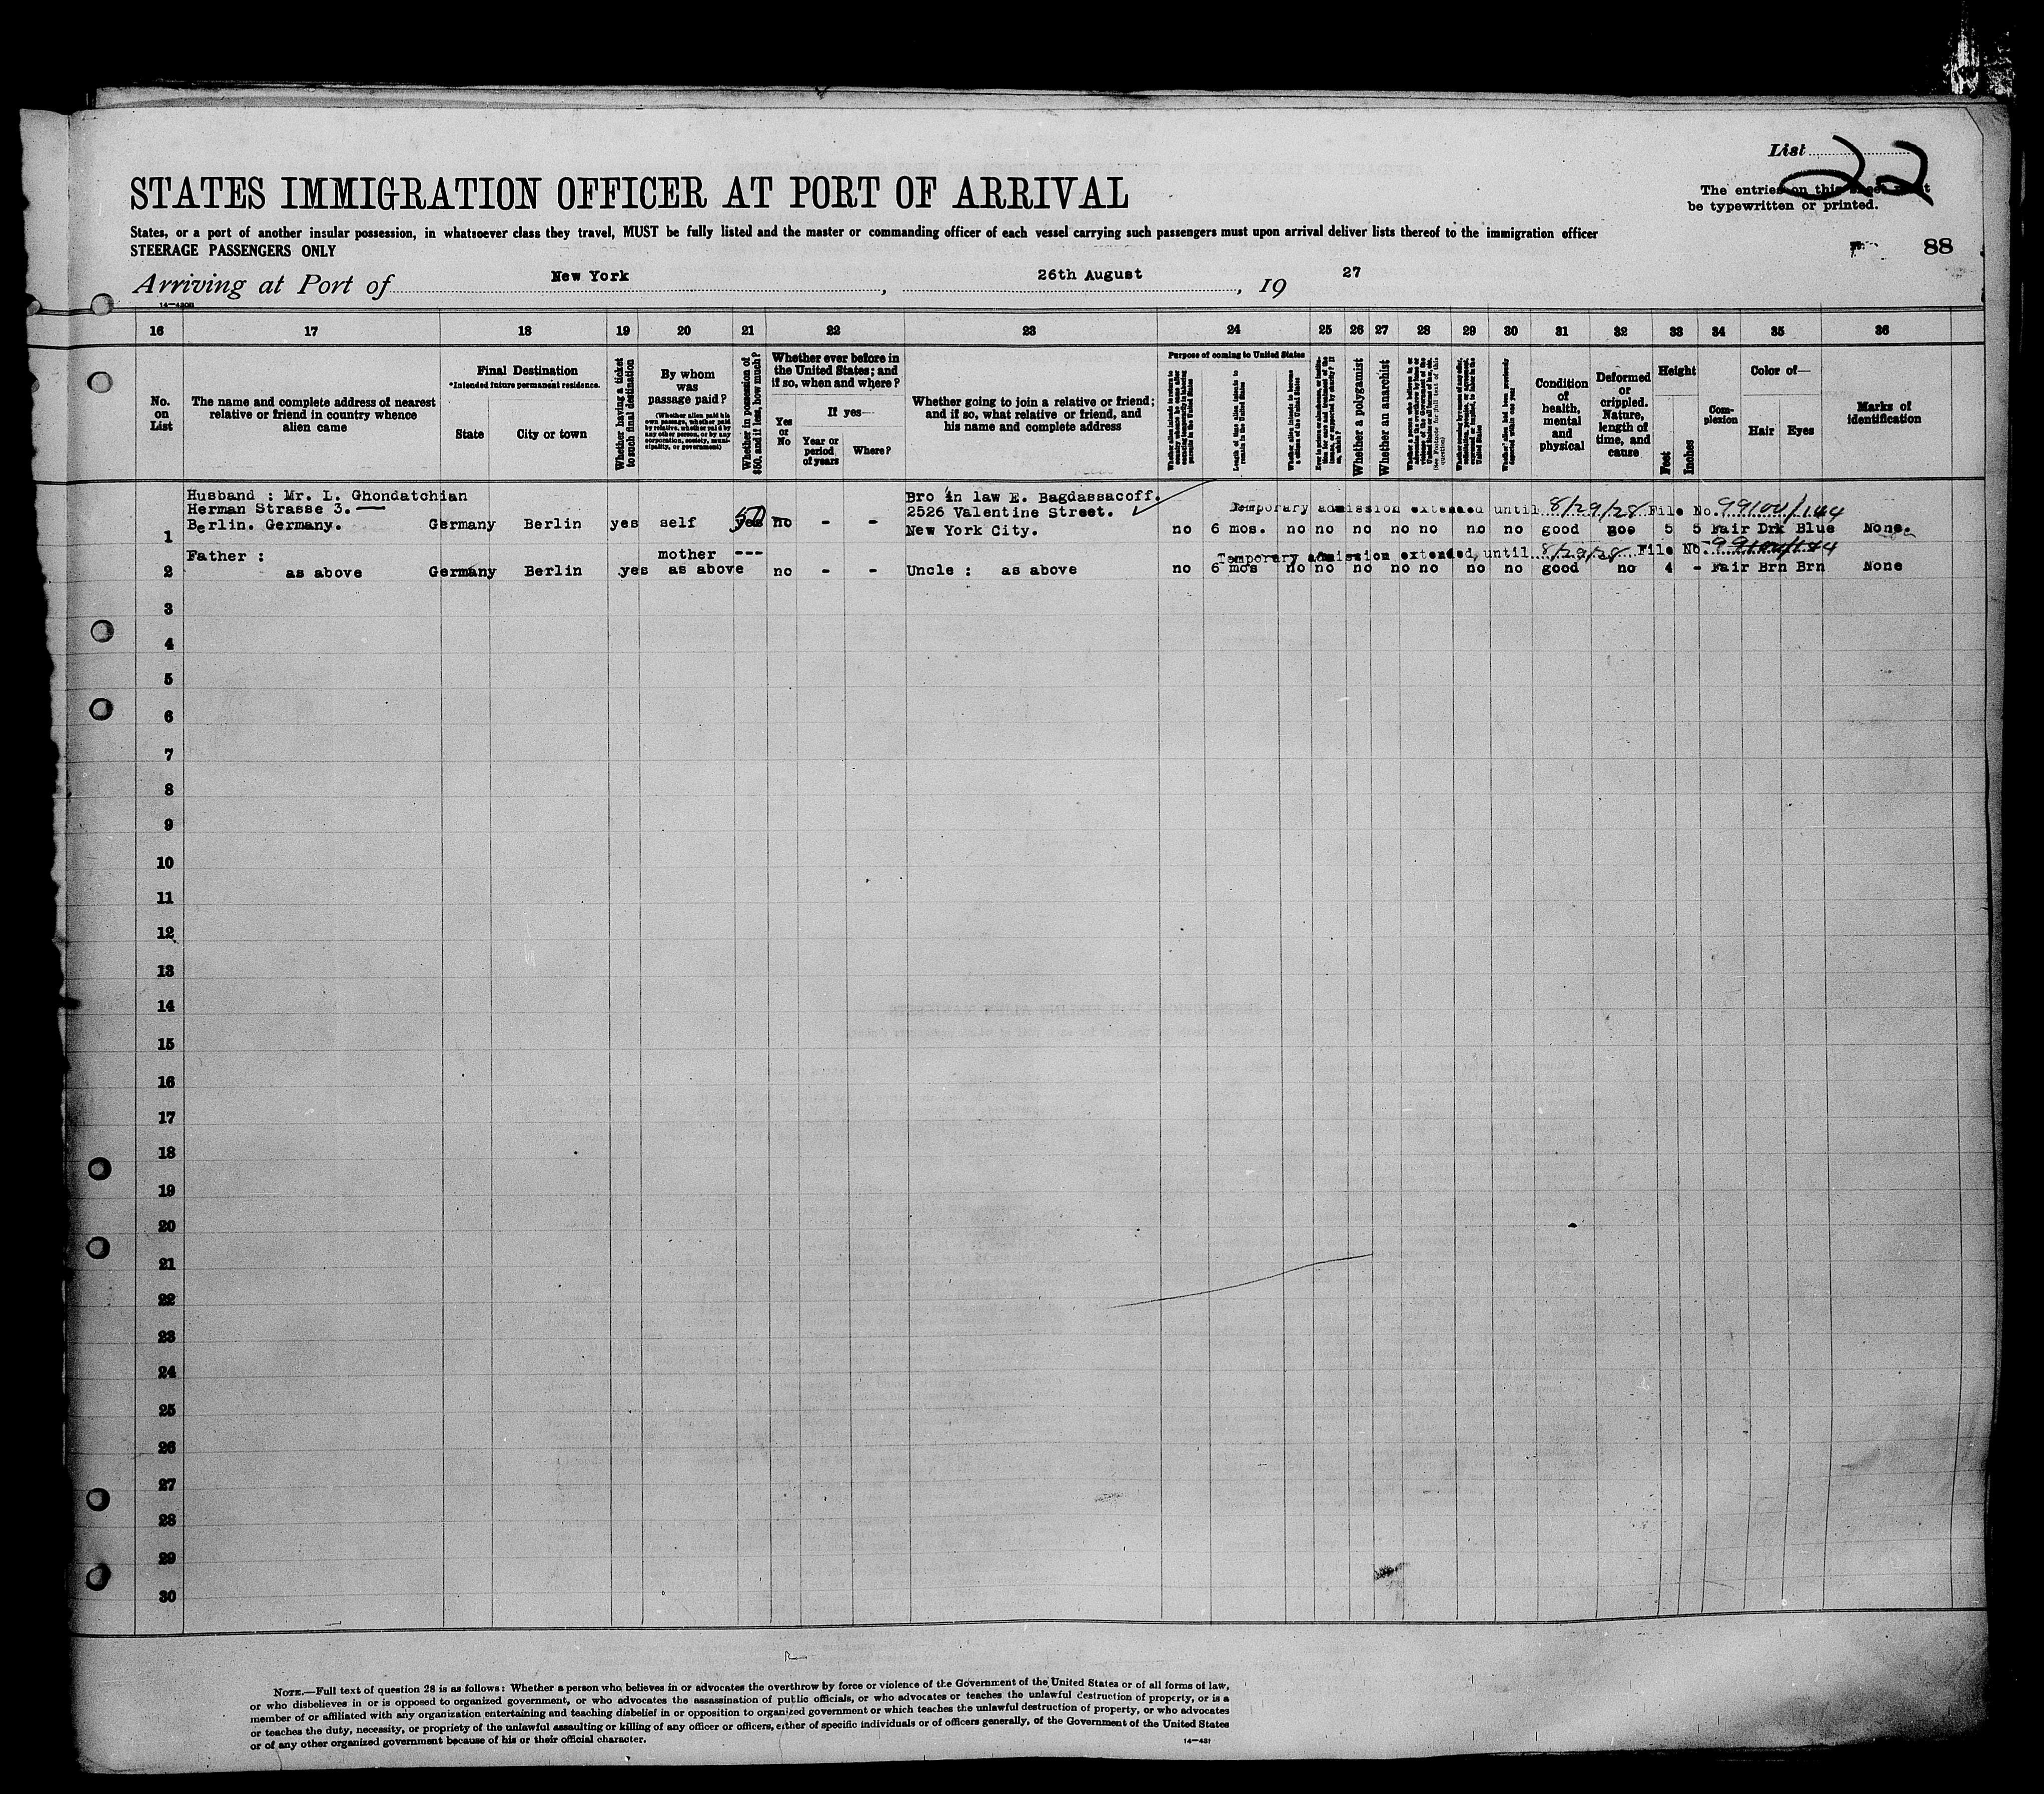 List 22
STATES IMMIGRATION OFFICER AT PORT OF ARRIVAL
The entries on this sheet must
be typewritten or printed.
States, or a port of another insular possession, in whatsoever class they travel, MUST be fully listed and the master or commanding officer of each vessel carrying such passengers must upon arrival deliver lists thereof to the immigration officer
STEERAGE PASSENGERS ONLY
88
Arriving at Port of New York, 26th August, 19 27
16 17 18 19 20 21 22 23 24 25 26 27 28 29 30 31 32 33 34 35 36
No. on List
The name and complete address of nearest relative or friend in country whence alien came
Final Destination
*Intended future permanent residence.
State
City or town
Whether having a ticket to such final destination
By whom was passage paid?
(Whether alien paid his own passage, whether paid by relative, whether paid by any other person, or by any corporation, society, municipality, or government)
Whether in possession of $50, and if less, how much?
Whether ever before in the United States; and if so, when and where?
Yes or No
If yes—
Year or period of years
Where?
Whether going to join a relative or friend; and if so, what relative or friend, and his name and complete address
Purpose of coming to United States
Length of time alien intends to remain in the United States
Whether alien intends to become a citizen of the United States
Whether a polygamist
Whether an anarchist
Condition of health, mental and physical
Deformed or crippled. Nature, length of time, and cause
Height
Feet
Inches
Complexion
Color of—
Hair
Eyes
Marks of identification
Husband : Mr. L. Ghondatchian
Herman Strasse 3.
Bro in law E. Bagdassacoff.
2526 Valentine Street.
Temporary admission extended until 8/29/28 File No. 99100/144
1 Berlin. Germany. Germany Berlin yes self yes 50 no - - New York City. no 6 mos. no no no no no no no no good no 5 5 Fair Drk Blue None.
Father : mother ---
Temporary admission extended, until 8/29/28 File No. 99100/144
2 as above Germany Berlin yes as above no - - Uncle : as above no 6 mos no no no no no no no no good no 4 - Fair Brn Brn None
3
4
5
6
7
8
9
10
11
12
13
14
15
16
17
18
19
20
21
22
23
24
25
26
27
28
29
30
NOTE.—Full text of question 28 is as follows: Whether a person who believes in or advocates the overthrow by force or violence of the Government of the United States or of all forms of law,
or who disbelieves in or is opposed to organized government, or who advocates the assassination of public officials, or who advocates or teaches the unlawful destruction of property, or is a
member of or affiliated with any organization entertaining and teaching disbelief in or opposition to organized government or which teaches the unlawful destruction of property, or who advocates
or teaches the duty, necessity, or propriety of the unlawful assaulting or killing of any officer or officers, either of specific individuals or of officers generally, of the Government of the United States
or of any other organized government because of his or their official character.
14—431